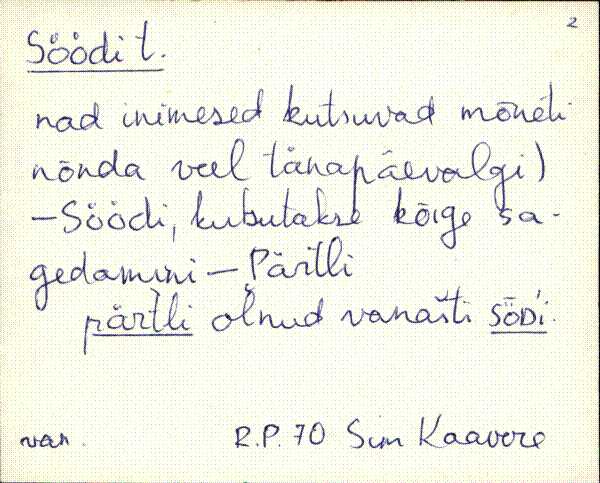 2
Söödi t.
nad inimesed kutsuvad mõneti
nõnda veel tänapäevalgi)
– Söödi, kubutakse kõige sa-
gedamini – Pärtli
pärtli olnud vanasti söDi.
van. R.P. 70 Sim Kaavere